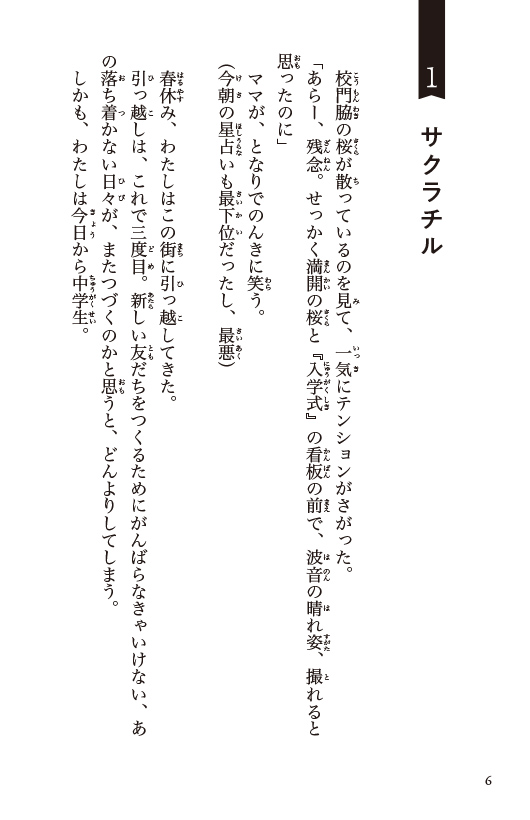 1
サクラチル
校門脇の桜が散っているのを見て、一気にテンションがさがった。
「あらー、残念。せっかく満開の桜と『入学式』の看板の前で、波音の晴れ姿、撮れると
思ったのに」
ママが、となりでのんきに笑う。
(今朝の星占いも最下位だったし、最悪)
春休み、わたしはこの街に引っ越してきた。
引っ越しは、これで三度目。新しい友だちをつくるためにがんばらなきゃいけない、あ
の落ち着かない日々が、またつづくのかと思うと、どんよりしてしまう。
しかも、わたしは今日から中学生。
6